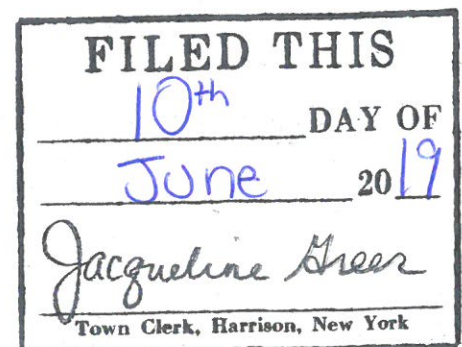 FILED THIS
10th DAY OF
June 2019
Jacqueline Greer
Town Clerk, Harrison, New York